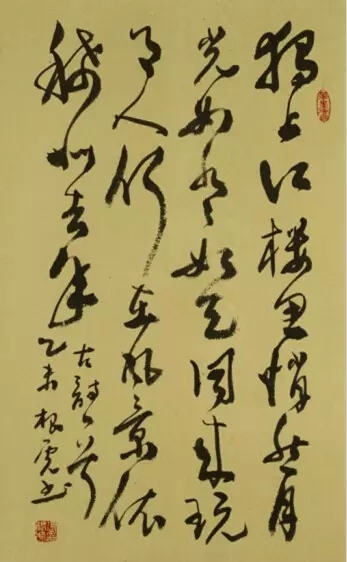 独上江楼思悄然月
光如水々如天同来玩
月人何在风景依
稀似去年
古詩一首
乙未根虎书